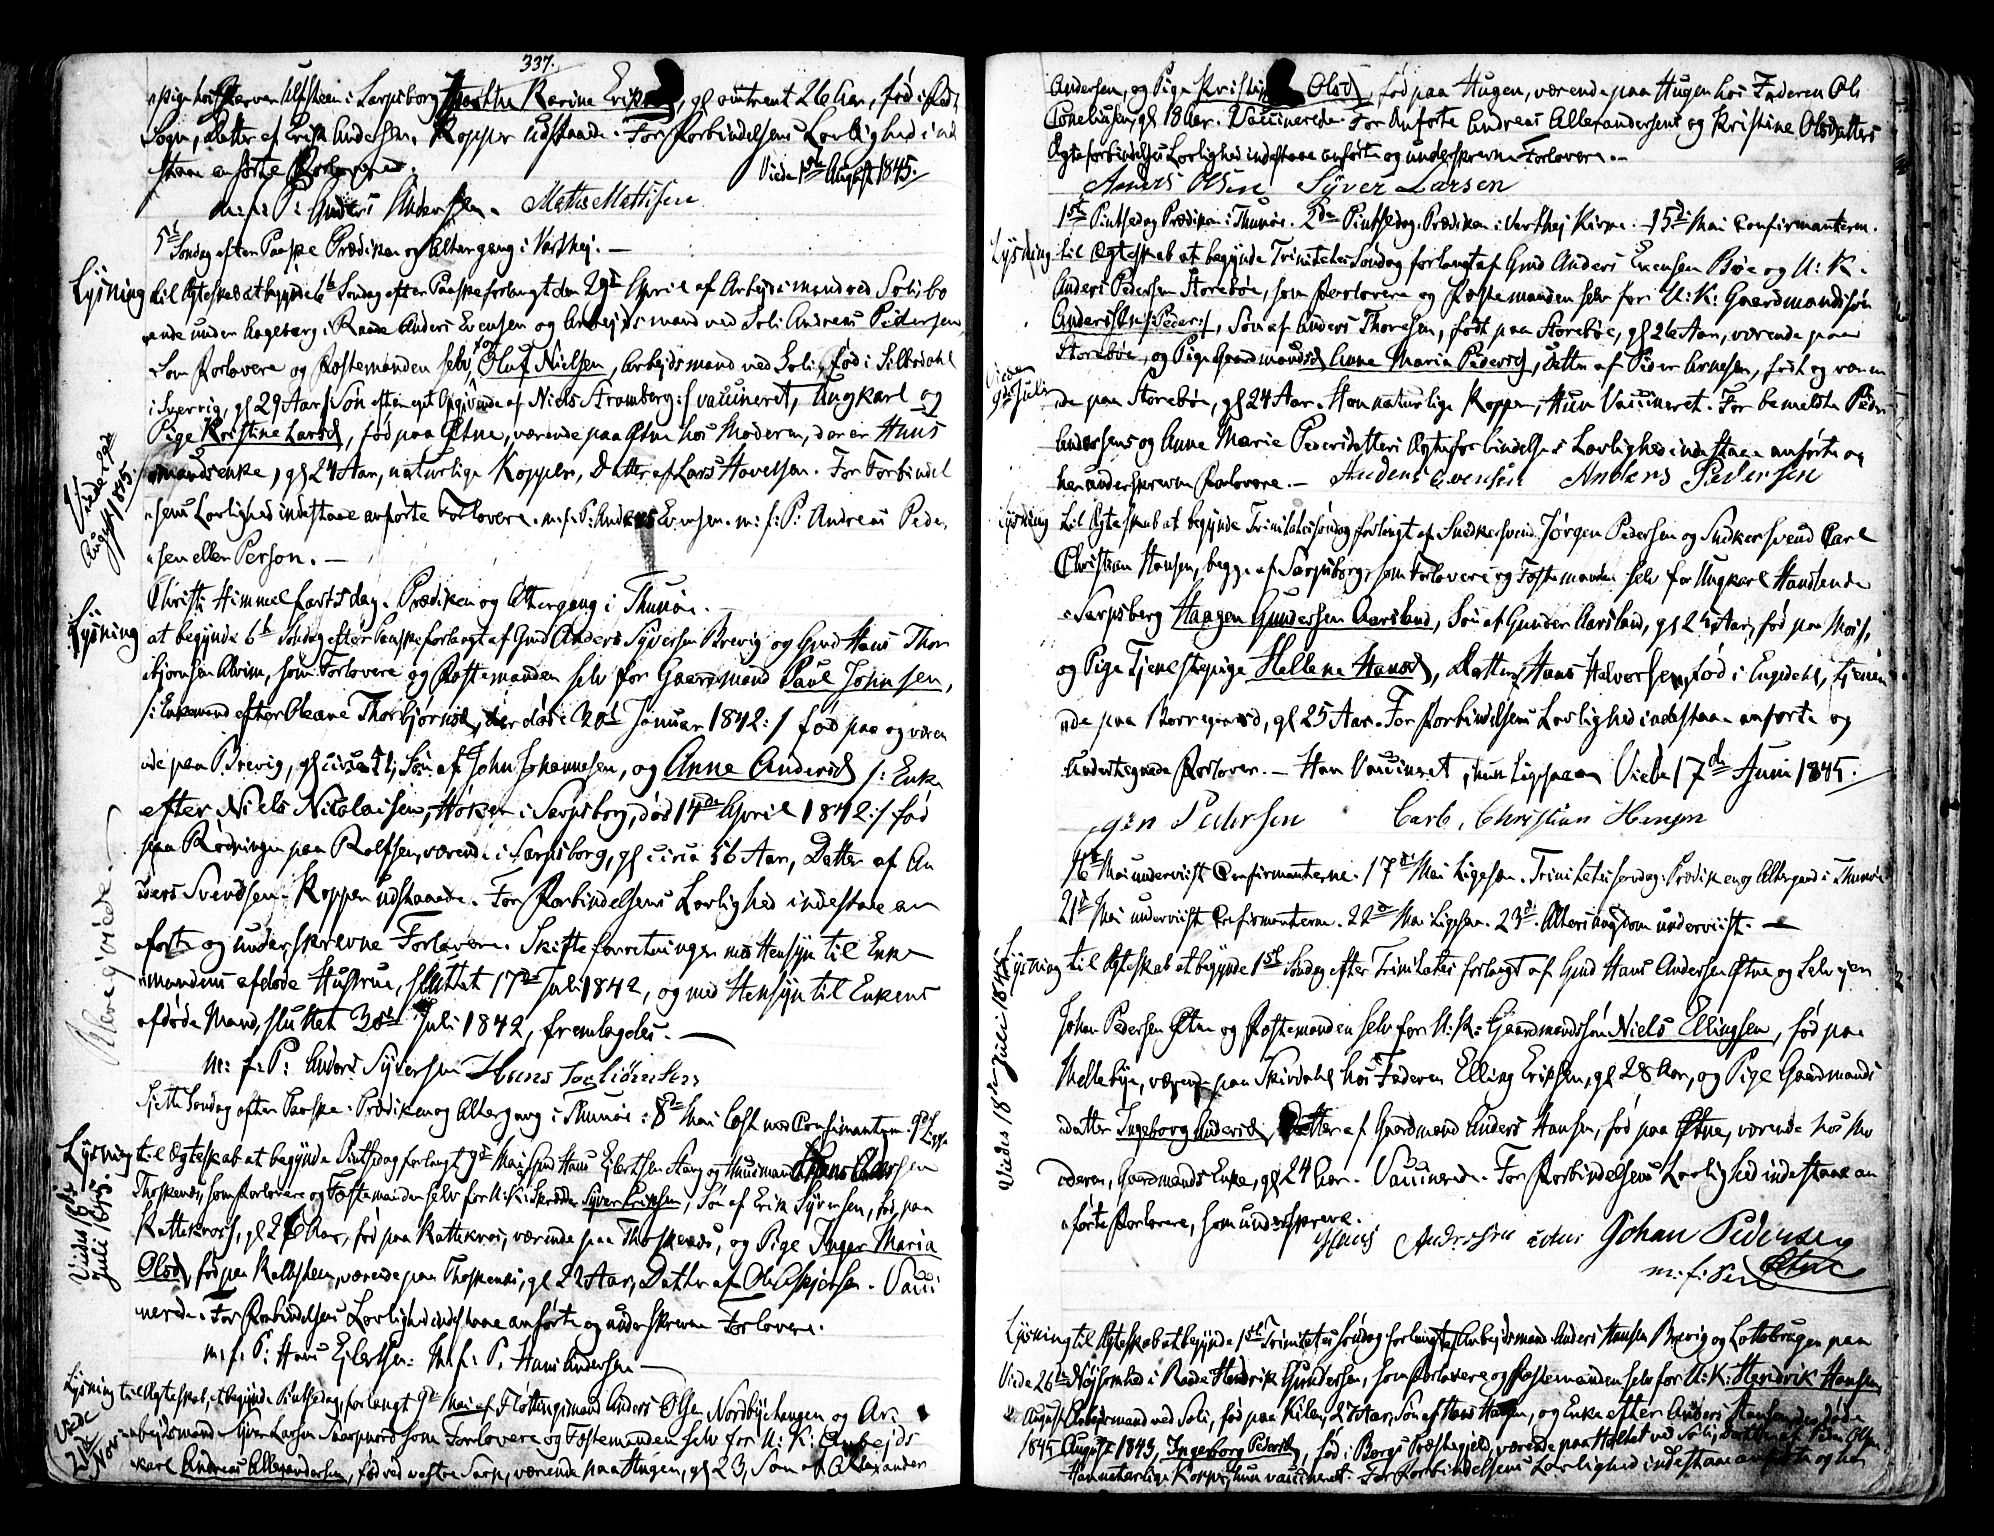 337.
Pige hos Farver Ulfsteen i Sarpsborg Marthe Karine Eriks, gl omtrent 26 Aar, fød i
Sogn, Datter af Erik Andersen. Kopper udstaaede. For Forbindelsens Lovlighed ind
staae anførte Forlovere.
Viede 1ste August 1845.
m: f: P: Anders Andersen. Mattis Mattisen
5te Søndag efter Paaske Prædiken og Altergang i Varthej. —
Lysning til Ægteskab at begynde 6te Søndag efter Paaske forlangt den 29de April af Arbejdsmand ved Soli, bo
ende under Aageberg i Raade Anders Evensen og Arbejdsmand ved Soli Andreas Pedersen
som Forlovere og Fæstemanden selv, for Oluf Nielsen, Arbejdsmand ved Soli, fød i Silbodahl
i Sverrig, gl 29 Aar /: Søn efter eget Opgivende af Niels Stromberg :/ vaccineret, Ungkarl og
Pige Kristine Larsd, fød paa Ætne, værende paa Ætne hos Moderen, der er Huus
mandsenke, gl 24 Aar, naturlige Kopper, Datter af Lars Havelsen. For Forbindel
sens Lovlighed indestaae anførte Forlovere. m: f: P: Anders Evensen. m: f: P: Andreas Peder
sen eller Person. —
Viede 1ste August 1845.
Christi Himmelfartsdag. Prædiken og Altergang i Thunøe. —
Lysning at begynde 6te Søndag efter Paaske forlangt af Gmd Anders Syversen Brevig og Gmd Hans Thor
bjørnsen Alvim, som Forlovere og Fæstemanden selv for Gaardmand Paul Johnsen,
/: Enkemand efter Oleane Thorbjørnsd, der døde 20de Januar 1842 :/ fød paa og være
nde paa Brevig, gl circa 41, Søn af John Johannesen, og Anne Andersd /: Enke
efter Niels Nicolaisen, Høker i Sarpsborg, død 14de April 1842 :/ fød
paa Rødningen paa Rolfsøn, værende i Sarpsborg, gl circa 56 Aar, Datter af An
ders Svendsen. Kopper udstaaede. For Forbindelsens Lovlighed indestaae an
førte og underskrevne Forlovere. Skifteforretninger med Hensyn til Enke
mandens afdøde Hustrue, sluttet 17de Juli 1842, og med Hensyn til Enkens
afdøde Mand, sluttet 30te Juli 1842, fremlagdes. —
Ere viede.
m: f: P: Anders Syversen Hans Torbiörnsen
Sjette Søndag efter Paaske. Prædiken og Altergang i Thunøe. 8de Mai læst med Confirmanterne. 9de Lige
Lysning til Ægteskab at begynde Pintsedag forlangt 9de Mai Gmd Hans Ejlertsen Aarg og Huusmand Hans Andersen
Thoskenæs, som Forlovere og Fæstemanden selv for U: K: Skræder Syver Eriksen, Søn af Erik Syversen, fød paa
Kattekroes, gl 26 Aar, fød paa Kattekroes, værende paa Thoskenæs, og Pige Inger Maria
Olsd, fød paa Kalbsteen, værende paa Thoskenæs, gl 22 Aar, Datter af Ole Asbjørnsen. Vacci
nerede. For Forbindelsens Lovlighed indestaae anførte og underskrevne Forlovere.
Viede 18de Juli 1845.
m: f: P: Hans Ejlertsen. m: f: P: Hans Andersen —
Lysning til Ægteskab, at begynde Pintsedag, forlangt 9de Mai af Fløttingsmand Anders Olsen Nordbyehaugen og Ar
bejdsmand Syver Larsen som Forlovere og Fæstemanden selv for U: K: Arbejds
karl Andreas Allexandersen, fød ved vestre Sarp, værende paa Hugen, gl 23, Søn af Allexander
Viede 21de Nov:
Andersen, og Pige Kristine Olsd, fød paa Hugen, værende paa Hugen hos Faderen Ole
Corneliusen, gl 18 Aar. Vaccinerede. For Anførte Andreas Allexandersens og Kristine Olsdatters
Ægteforbindelses Lovlighed indestaae anførte og underskrevne Forlovere. —
Anders Olsen Syver Larsen
1ste Pintsedag Prædiken i Thunøe. 2den Pintsedag Prædiken i Varthej Kirke. 15de Mai Confirmanterne.
Lysning til Ægteskab at begynde Trinitatis Søndag forlangt af Gmd Anders Evensen Bøe og U: K:
Anders Pedersen Storebøe, som Forlovere og Fæstemanden selv for U: K: Gaardmandssøn
Andersen /: Peder :/, Søn af Anders Thoresen, født paa Storebøe, gl 26 Aar, værende paa
Storebøe, og Pige Gaardmandsd Anne Maria Pedersd, Datter af Peder Arnesen, født og være
nde paa Storebøe, gl 24 Aar. Han naturlige Kopper, Hun Vaccineret. For bemeldte Peder
Andersens og Anne Marie Pedersdatters Ægteforbindelses Lovlighed indestaae anførte og
her underskrevne Forlovere. — Anders Evensen Anders Pedersen
Viede 9de Juli
Lysning til Ægteskab at begynde Trinitatis søndag forlangt af Snedkersvend Jørgen Pedersen og Snedkersvend Carl
Christian Hansen, begge af Sarpsborg, som Forlovere og Fæstemanden selv for Ungkarl Handlende
i Sarpsborg Haagen Gundersen Aarsland, Søn af Gunder Aarsland, gl 24 Aar, fød paa Moss,
og Pige Tjenestepige Hellene Hansd, Datter af Hans Halvorsen, fød i Engedahl, tjene
nde paa Borregaard, gl 25 Aar. For Forbindelsens Lovlighed indestaae anførte og
undertegnede Forlover. — Han Vaccineret, hun ligesaa. Viede 17de Juni 1845.
Jørgen Pedersen Carl Christian Hansen
16de Mai underviist Confirmanterne. 17de Mai ligesaa. Trinitatis søndag: Prædiken og Altergand i Thunøe
21de Mai underviist Confirmanterne. 22de Mai ligesaa. 23de Alters ungdom underviist. —
Lysning til Ægteskab at begynde 1ste Søndag efter Trinitatis forlangt af Gmd Hans Andersen Ætne og Selvejer
Johan Pedersen Ætne og Fæstemanden selv for U: K: Gaardmandssøn Niels Ellingsen, fød paa
Mellebye, værende paa Skivdahl hos Faderen Elling Eriksen, gl 28 Aar, og Pige Gaardmands
datter Ingeborg Andersd, Datter af Gaardmand Anders Hansen, fød paa Ætne, værende hos Mo
deren, Gaardmands Enke, gl 24 Aar. Vaccinerede. For Forbindelsens Lovlighed indestaae an
førte Forlovere, som underskreve.
Viedes 18de Juli 1845
Hans Andersen Johan Pedersen
m: f: P: Ætne
Lysning til Ægteskab at begynde 1ste Trinitatis søndag forlangt af Arbejdsmand Anders Hansen Brevig og Lottebrugen paa
Nøjsomhed i Raade Hendrik Gundersen, som Forlovere og Fæstemanden selv for U: K: Hendrik Hansen,
Arbejdsmand ved Soli, fød paa Kilen, 27 Aar, Søn af Hans, og Enke efter Anders Hansen der døde
August 1843, Ingeborg Pedersd, fød i Bergs Præstegjeld, værende paa Holtet ved Soli, Datter af Peder Olsen.
Han naturlige Kopper, hun vaccineret. For Forbindelsens Lovlighed indestaae anførte og her
Viede 26de August 1845